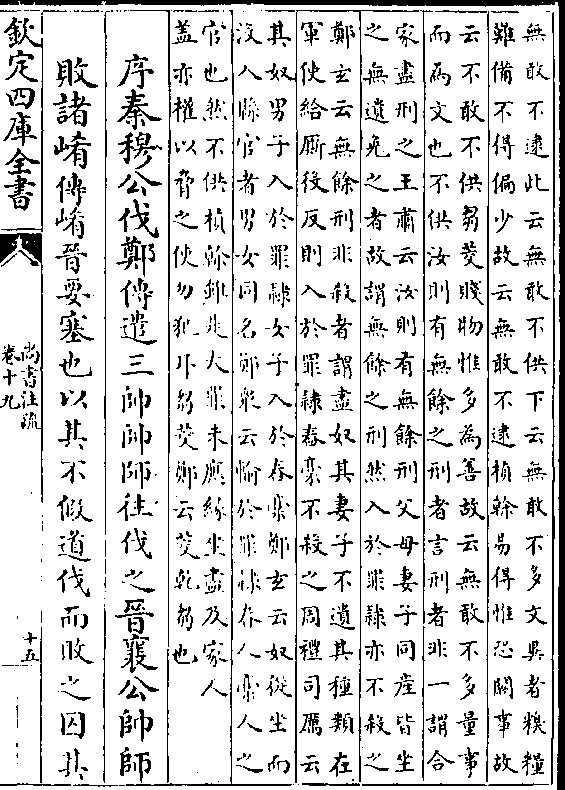 無敢不逮此云無敢不供下云無敢不多文異者糗糧
難備不得偏少故云無敢不逮楨榦易得惟恐闕事故
云不敢不供芻茭賤物惟多為善故云無敢不多量事
而為文也不供汝則有無餘之刑者言刑者非一謂合
家盡刑之王肅云汝則有無餘刑父母妻子同產皆坐
之無遺免之者故謂無餘之刑然入於罪隷亦不殺之
鄭玄云無餘刑非殺者謂盡奴其妻子不遺其種類在
軍使給厮役反則入於罪隷舂槀不殺之周禮司厲云
其奴男子入於罪隷女子入於舂槀鄭玄云奴從坐而
沒入縣官者男女同名鄭衆云輸於罪隷舂人槀人之
官也然不供楨榦雖是大罪未應緣坐盡及家人
蓋亦權以脅之使勿犯耳芻茭鄭云茭乾芻也
序秦穆公伐鄭傳遣三帥帥師往伐之晉襄公帥師
敗諸崤傳崤晉要塞也以其不假道伐而敗之囚其
欽定四庫全書
尚書注疏
卷十九
十五